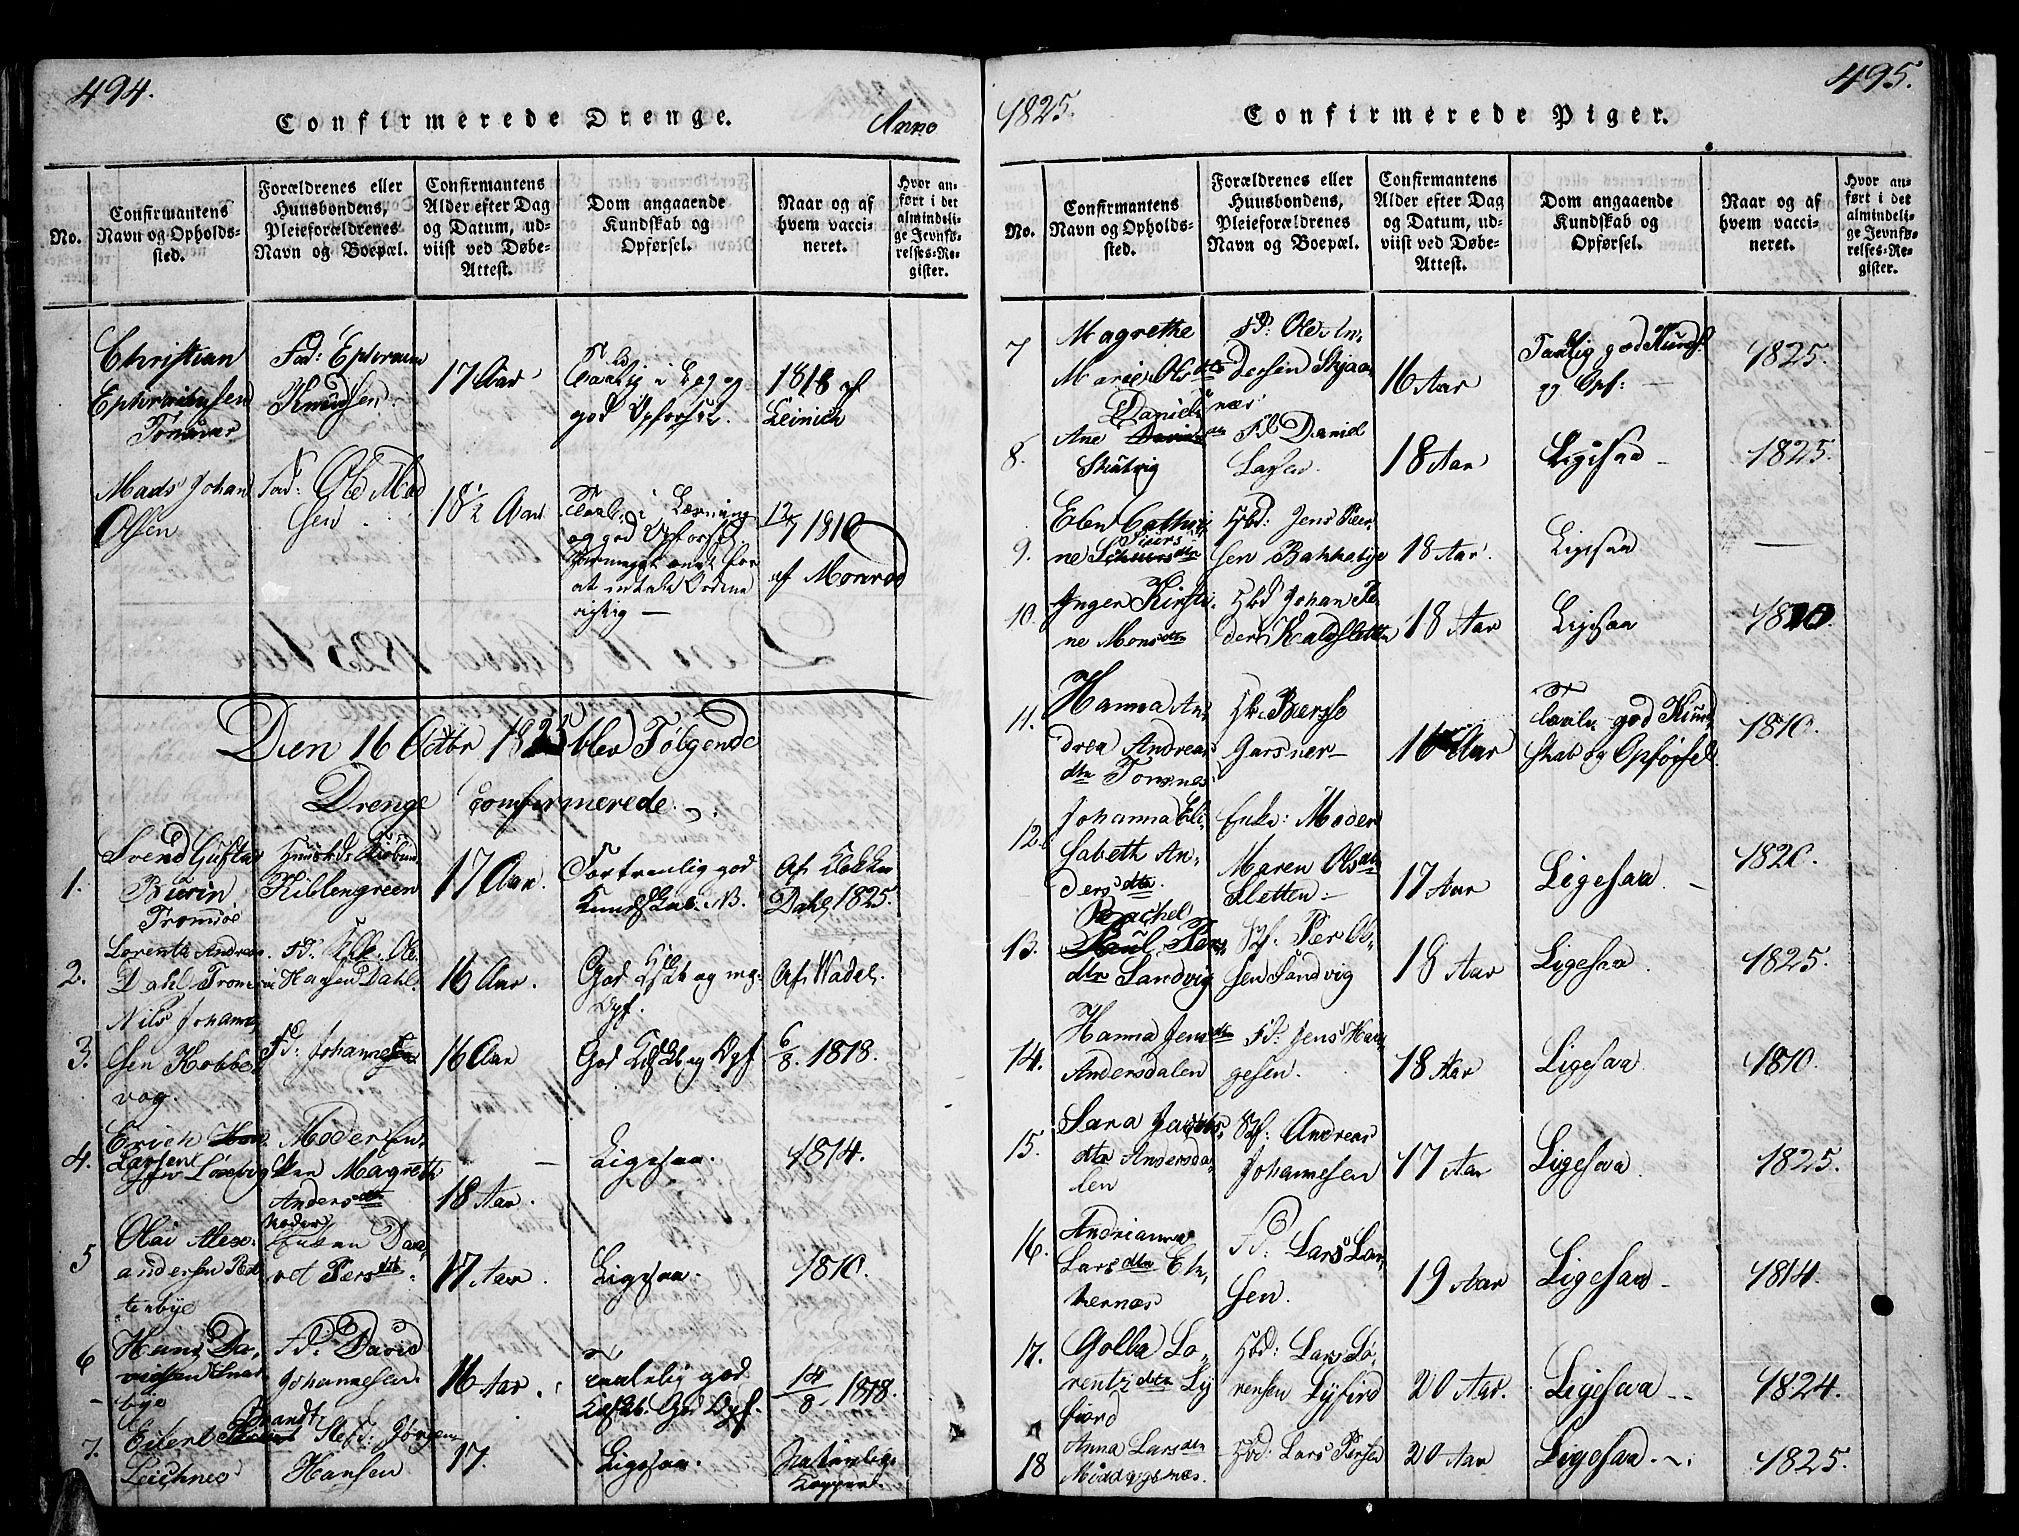 494.
Confirmerede Drenge.
Anno
No.
Confirmantens
Navn og Opholds-
sted.
Forældrenes eller
Huusbondens,
Pleieforældrenes
Navn og Boepæl.
Confirmantens
Alder efter Dag
og Datum, ud-
viist ved Døbe-
Attest.
Dom angaaende
Kundskab og
Opførsel.
Naar og af
hvem vacci-
neret.
Hvor an-
ført i det
almindeli-
ge Jevnfø-
relses-Re-
gister.
Christian
Ephraimsen
Tønsver
Fad: Ephraim
Knudsen.
17 Aar
Taalig i Lag og
god Opførsel.
1818 af
Leinich
Mads Johan
Olsen
Fad: Ole Mad
sen
18 1/2 Aar
Taal. i Læsning
og god Opførsel
at
rigtig —
12/7 1810
af Monrad
Den 16 Octbr 1825 blev Følgende
Drenge Comfirmerede.
1.
Svend Gustav
Bierin
Tromsøe
Kiblengreen
17 Aar.
Fortrenlig god
Kundskab.
Af Klokker
Dahl 1825.
2.
Lorents Andreas
Dahl Tromsøe
Fd. Klk. Ole
Hansen Dahl.
16 Aar.
God Kskb og mg.
Opf.
Af Wadel.
3.
Nils Johanne
sen Kobbe
vog.
Fd: Johannes
16 Aar
God Kskb og Opf
6/8. 1818.
4.
Erich
Larsen
Moder En-
ken Magreth
Anders dtr
18 Aar.
Ligesaa.
1814.
5
Olai Alex-
andersen Rot
tenbye
Moder
Enken Da
ret Pers dtr.
17 Aar.
Ligesaa.
1810.
6
Hans Da-
vidsen Snar
bye
Fd: David
Johannesen.
16 Aar.
Taalelig god
Kskb. Gd Opf.
14/8. 1818.
7.
Brandt
Eilert
Leichnes
Stefd: Jørgen
Hansen
17.
Ligesaa.
Naturlige
Kopper.
495.
1825.
Confirmerede Piger.
No.
Confirmantens
Navn og Opholds-
sted.
Forældrenes eller
Huusbondens,
Pleieforældrenes
Navn og Boepæl.
Confirmantens
Alder efter Dag
og Datum, ud-
viist ved Døbe-
Attest.
Dom angaaende
Kundskab og
Opførsel.
Naar og af
hvem vacci-
neret.
Hvor an-
ført i det
almindeli-
ge Jevnfø-
relses-Re-
gister.
7
Magrethe
Marie Ols dtr
Fd: Ole An-
dersen Skjaa-
næs
16 Aar
Taalig god Kunds.
og Opf: —
1825.
8.
Daniels
Ane dtr
Skulvig
Fd Daniel
Larsen.
18 Aar
Ligesaa —
1825.
9.
Elen Cathri-
Siurs
ne dtr
Hbd: Jens Peer-
sen Bakkebye
18 Aar.
Ligesaa
—
10.
Inger Kirsti-
ne Mons dtr
Hbd Johan Pe-
ders Kaldsletten
18 Aar
Ligesaa
1820.
11.
Hanna An-
drea Andreas
dtr Tonsnes
Gaasner —
16 Aar
Taalil. god Kund
skab og Opførsel
1810.
12.
Johanna Eli-
sabeth An-
ders dtr
Enke: Moder
Maren Ols dtr
Sletten —
17 Aar
Ligesaa. —
1820.
13.
Rachel
Pers
dtr Sandvig
Hf. Per Ol-
sen Sandvig
18 Aar
Ligesaa.
1825.
14.
Hanna Jens dtr
Andersdalen
Fd: Jens Hau-
gesen.
18 Aar
Ligesaa.
1810.
15.
Sara Jacobs
dtr Andersda-
len
Hf: Andreas
Johannesen
17 Aar
Ligesaa.
1825.
16.
Andrianna
Lars dtr El-
hernæs
Fd: Lars Lar-
sen.
19 Aar
Ligesaa —
1814.
17.
Golba Lo-
rentz dtr Ly
fiord
Hbd: Lars Lo-
rensen Lyfiord
20 Aar.
Ligesaa —
1824.
18
Anna Lars dtr
Middagsnæs.
Hbd: Lars Persen
20 Aar
Ligesaa.
1825.